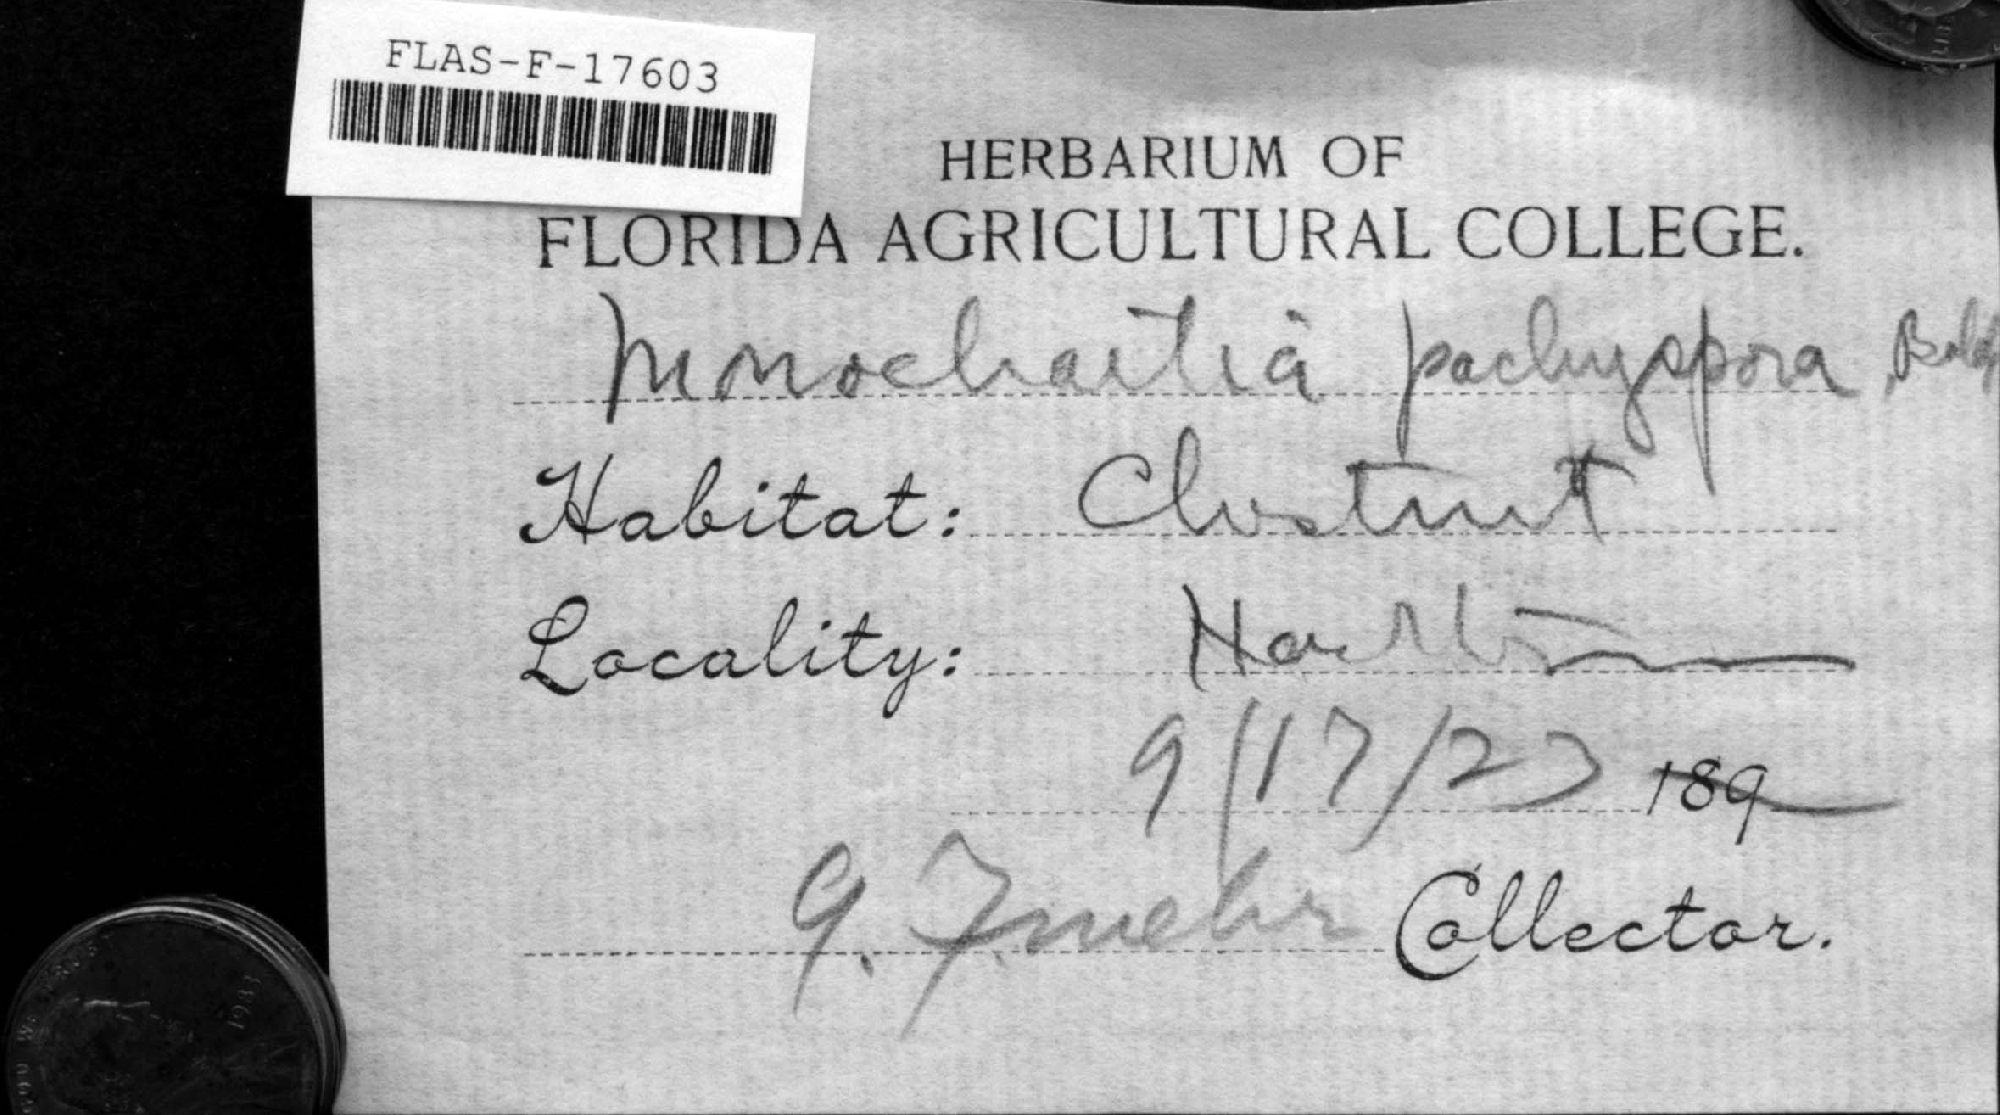 FLAS-F-17603
HERBARIUM OF
FLORIDA AGRICULTURAL COLLEGE.
Monochaitia pachyspora, Bub
Habitat: Chestnut
Locality:
9/17/23 189
Collector.
1983